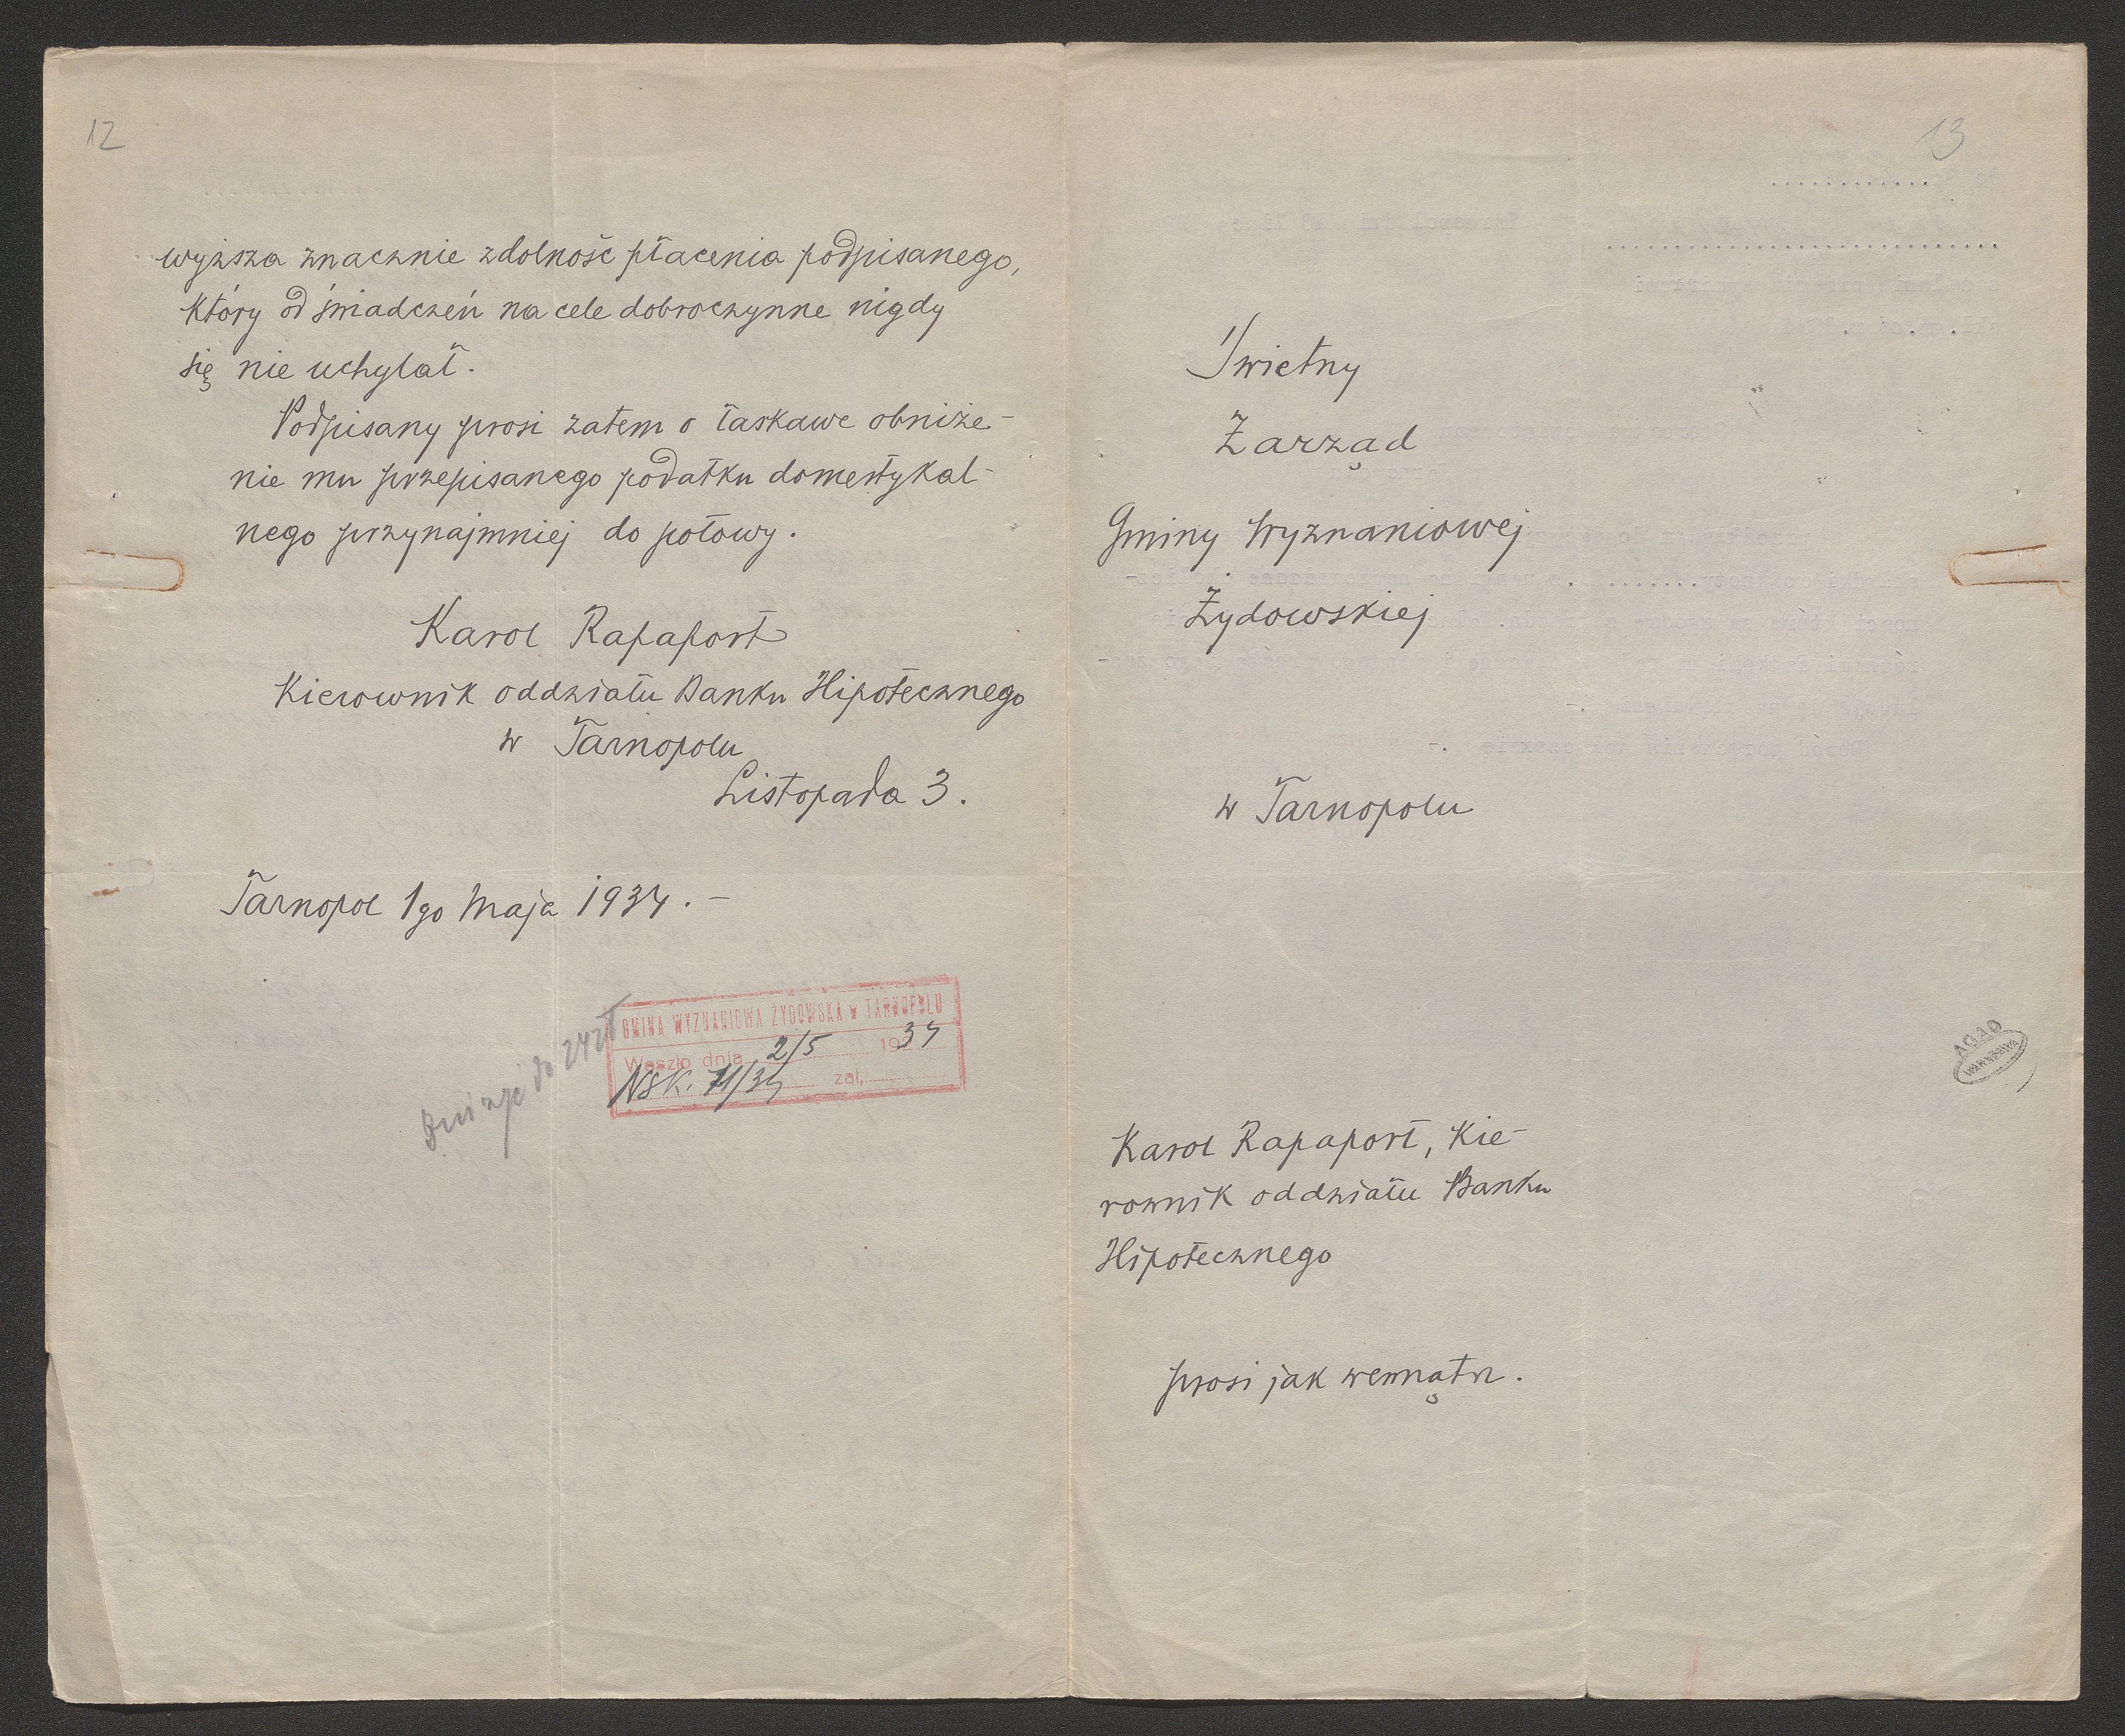 12
wyższa znacznie zdolność płacenia podpisanego,
który od świadczeń na cele dobroczynne nigdy
się nie uchylał.
Podpisany prosi zatem o łaskawe obniże-
nie mu przepisanego podatku domestykal-
nego przynajmniej do połowy.
Karol Rapaport
Kierownik oddziału Banku Hipotecznego
w Tarnopolu
Listopada 3.
Tarnopol 1go Maja 1934.-
GMINA WYZNANIOWA ŻYDOWSKA w TARNOPOLU
Weszło dnia 2/5 1934
NSK. 71/34 zał.
do 24 zł
13
Świetny
Zarząd
Gminy Wyznaniowej
Żydowskiej
w Tarnopolu
AGAD
WARSZAWA
Karol Rapaport, Kie-
rownik oddziału Banku
Hipotecznego
prosi jak wewnątrz.